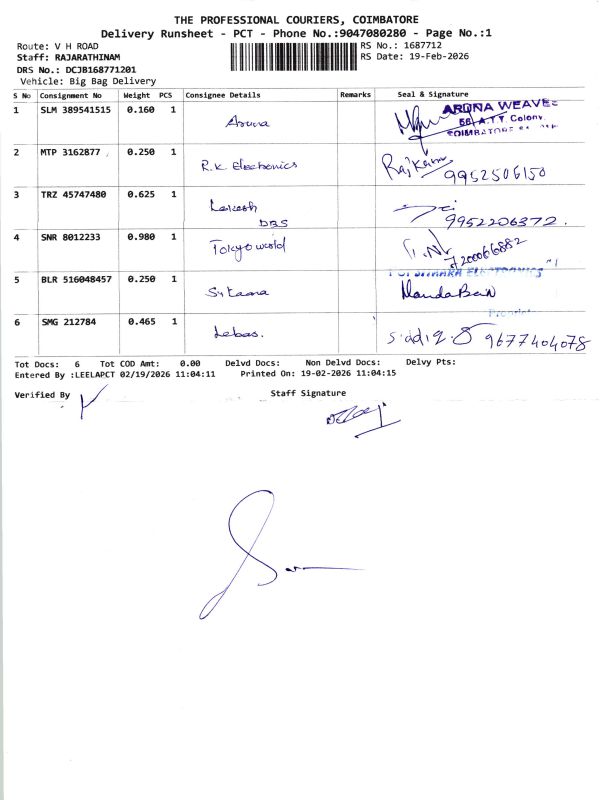 THE PROFESSIONAL COURIERS, COIMBATORE
Delivery Runsheet - PCT - Phone No.:9047080280 - Page No.:1
Route: V H ROAD
RS No.: 1687712
Staff: RAJARATHINAM
RS Date: 19-Feb-2026
DRS No.: DCJB168771201
Vehicle: Big Bag Delivery
S No Consignment No Weight PCS Consignee Details Remarks Seal & Signature
1 SLM 389541515 0.160 1 Aruna
ARUNA WEAVES
COIMBATORE
2 MTP 3162877 0.250 1 R.K. Electronics Rajkumar
9952506150
3 TRZ 45747480 0.625 1 Lokesh
DBS 9952206372.
4 SNR 8012233 0.980 1 Tokyo world
7200066882
5 BLR 516048457 0.250 1
6 SMG 212784 0.465 1 Lebas. Siddiq.S 9677404078
Tot Docs: 6 Tot COD Amt: 0.00 Delvd Docs: Non Delvd Docs: Delvy Pts:
Entered By :LEELAPCT 02/19/2026 11:04:11 Printed On: 19-02-2026 11:04:15
Verified By Staff Signature